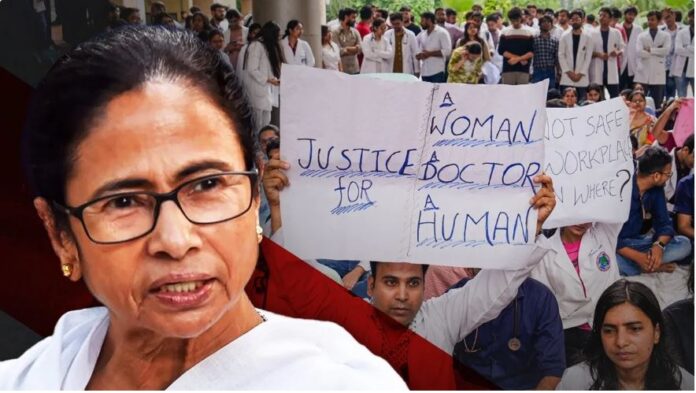 JUSTICE
for
A
WOMAN
A
DOCTOR
A
HUMAN
NOT SAFE
WHERE?